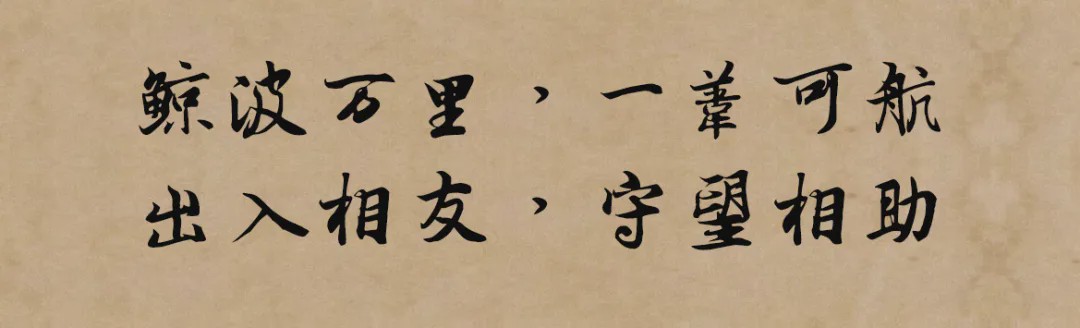 鲸波万里，一苇可航
出入相友，守望相助